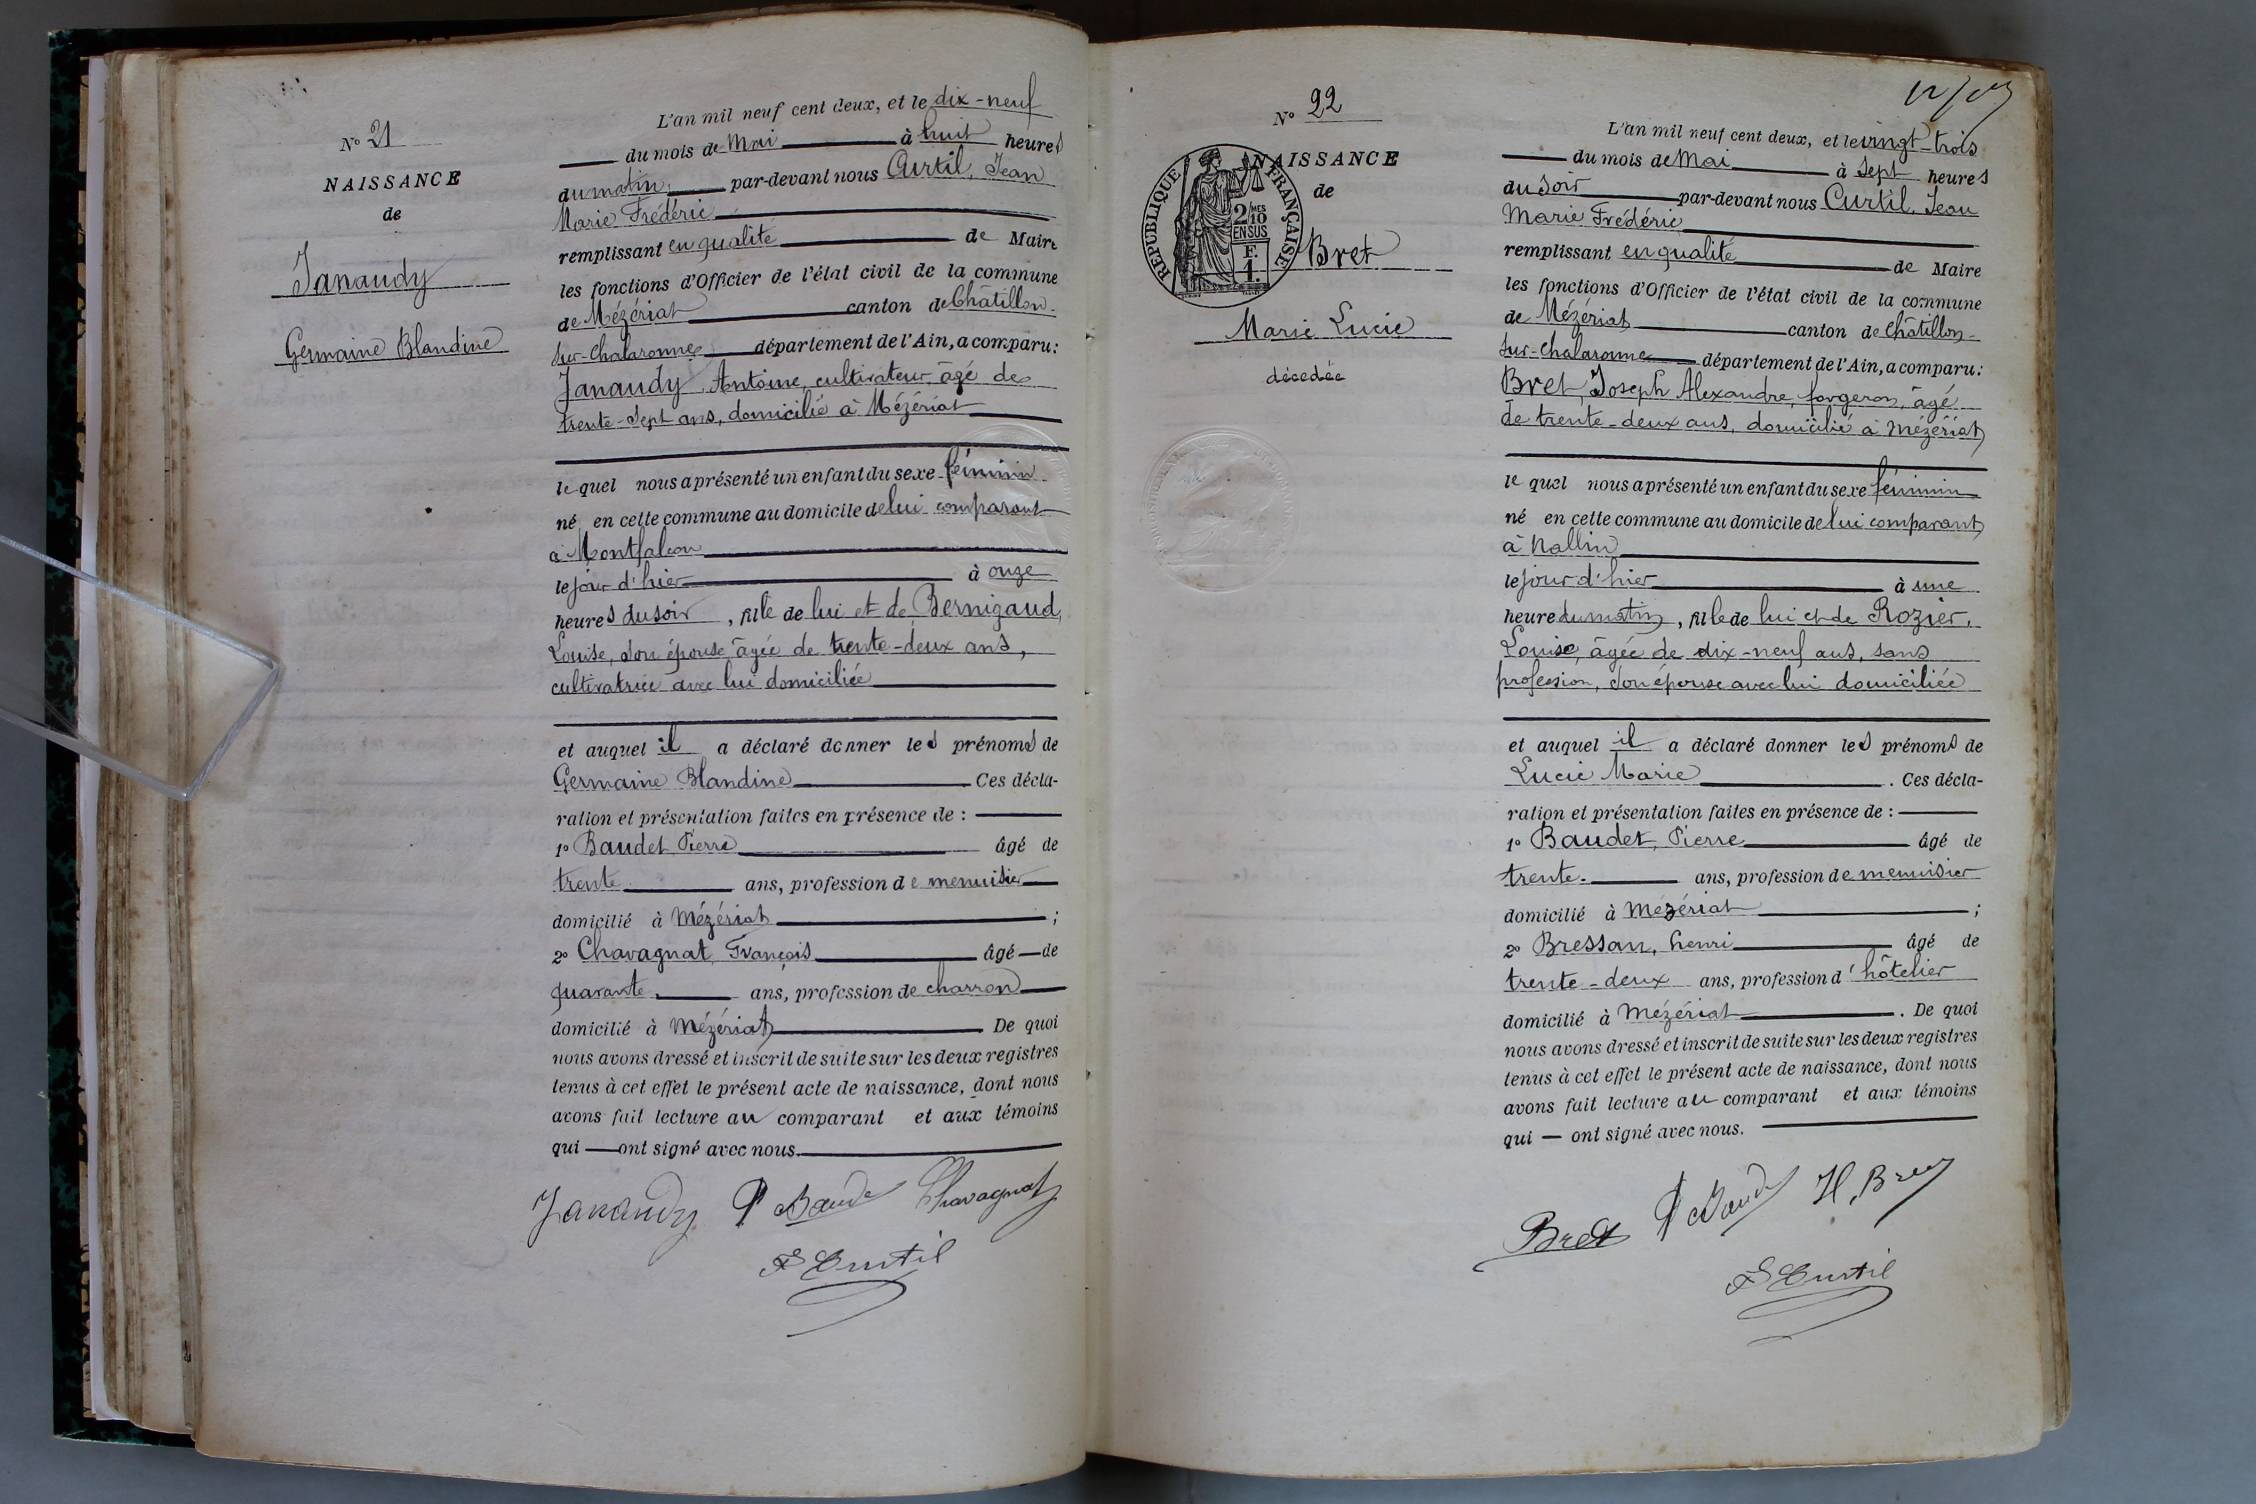 N° 21
NAISSANCE
de
Janaudy
Germaine Blandine
L'an mil neuf cent deux, et le dix-neuf
du mois de Mai à huit heures
du matin, par-devant nous Curtil, Jean
Marie Frédéric
remplissant en qualité de Maire
les fonctions d'Officier de l'état civil de la commune
de Mézériat canton de Châtillon-
sur-Chalaronne département de l'Ain, a comparu:
Janaudy Antoine, cultivateur, âgé de
trente-sept ans, domicilié à Mézériat
le quel nous a présenté un enfant du sexe féminin
né en cette commune au domicile de lui comparant
à Montfalcon
le jour d'hier à onze
heures du soir, fille de lui et de Bernigaud,
Louise, son épouse âgée de trente-deux ans,
cultivatrice avec lui domiciliée
et auquel il a déclaré donner les prénoms de
Germaine Blandine. Ces décla-
ration et présentation faites en présence de :
1° Baudet, Pierre âgé de
trente ans, profession de menuisier
domicilié à Mézériat ;
2° Chavagnat, François âgé de
quarante ans, profession de charron
domicilié à Mézériat De quoi
nous avons dressé et inscrit de suite sur les deux registres
tenus à cet effet le présent acte de naissance, dont nous
avons fait lecture au comparant et aux témoins
qui ont signé avec nous.
Janaudy P Baudet Chavagnat
F Curtil
N° 22
NAISSANCE
de
RÉPUBLIQUE FRANÇAISE
2/MES
10
EN SUS
F.
1.
Bret
Marie Lucie
décédée
L'an mil neuf cent deux, et le vingt-trois
du mois de Mai à sept heures
du soir par-devant nous Curtil, Jean
Marie Frédéric
remplissant en qualité de Maire
les fonctions d'Officier de l'état civil de la commune
de Mézériat canton de Châtillon-
sur-Chalaronne département de l'Ain, a comparu:
Bret, Joseph Alexandre, forgeron, âgé
de trente-deux ans, domicilié à Mézériat
le quel nous a présenté un enfant du sexe féminin
né en cette commune au domicile de lui comparant
à Nallin
le jour d'hier à une
heure du matin, fille de lui et de Rozier,
Louise, âgée de dix-neuf ans, sans
profession, son épouse avec lui domiciliée
et auquel il a déclaré donner les prénoms de
Lucie Marie. Ces décla-
ration et présentation faites en présence de :
1° Baudet, Pierre âgé de
trente- ans, profession de menuisier
domicilié à Mézériat ;
2° Bressan, henri âgé de
trente-deux ans, profession d'hôtelier
domicilié à Mézériat. De quoi
nous avons dressé et inscrit de suite sur les deux registres
tenus à cet effet le présent acte de naissance, dont nous
avons fait lecture au comparant et aux témoins
qui — ont signé avec nous.
Bret P Baudet H. Bress
F Curtil